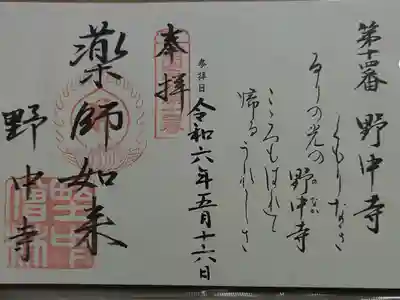 第十四番 野中寺
くもりなき
るりの光の野中寺
のなか
こころもはれて
帰るうれしさ
参拝日
令和六年五月十六日
奉拝
薬師如来
野中寺